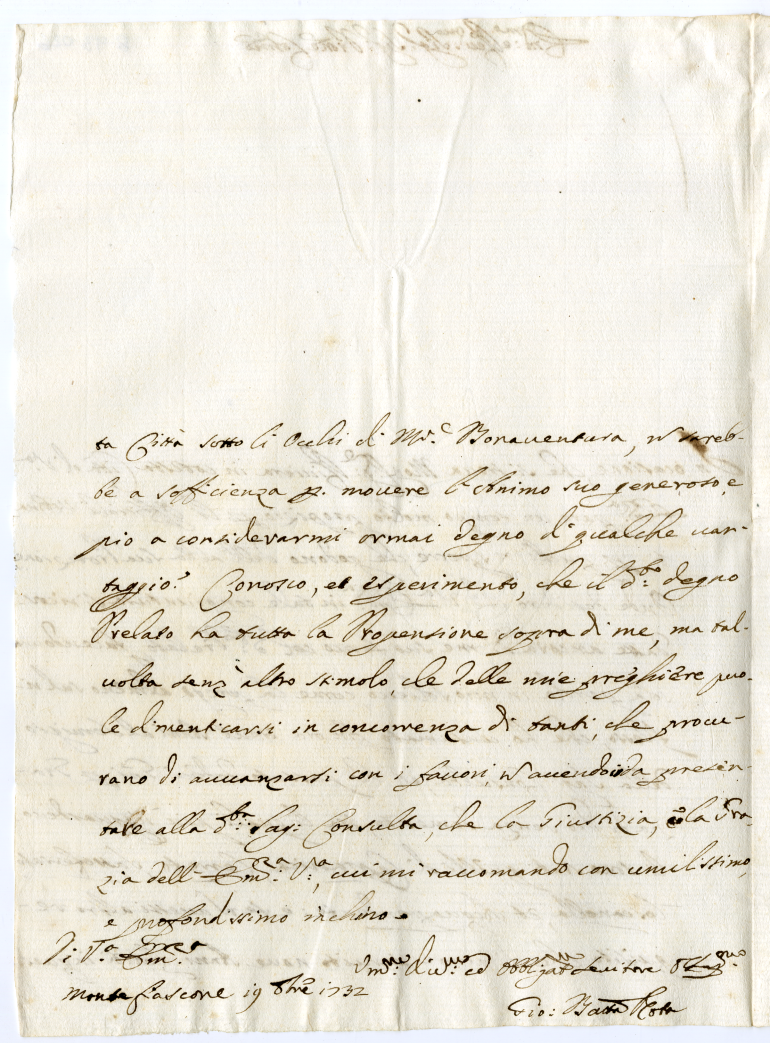 ta Città sotto li Occhi di Mr.e Bonaventura, sareb-
be a sofficienza p. movere l'Animo suo generoso, e
pio a considerarmi ormai degno di qualche van-
taggio. Conosco, et esperimento, che il d.to degno
Prelato ha tutta la Propensione sopra di me, ma tal-
volta senz'altro stimolo, che delle mie preghiere puo-
le dimenticarsi in concorrenza di tanti, che procu-
rano di avvanzarsi con i favori, avendo da presen-
tare alla d.ta Sag: Consulta, che la Giustizia, e la Gra-
zia dell'Em.za V.a, cui mi raccomando con umilissimo,
e profondissimo inchino.
Di V.a Em.za
Montefiascone 19 1732
Um.mo ed Obbligat.mo Servitore
Gio: Batta Rota